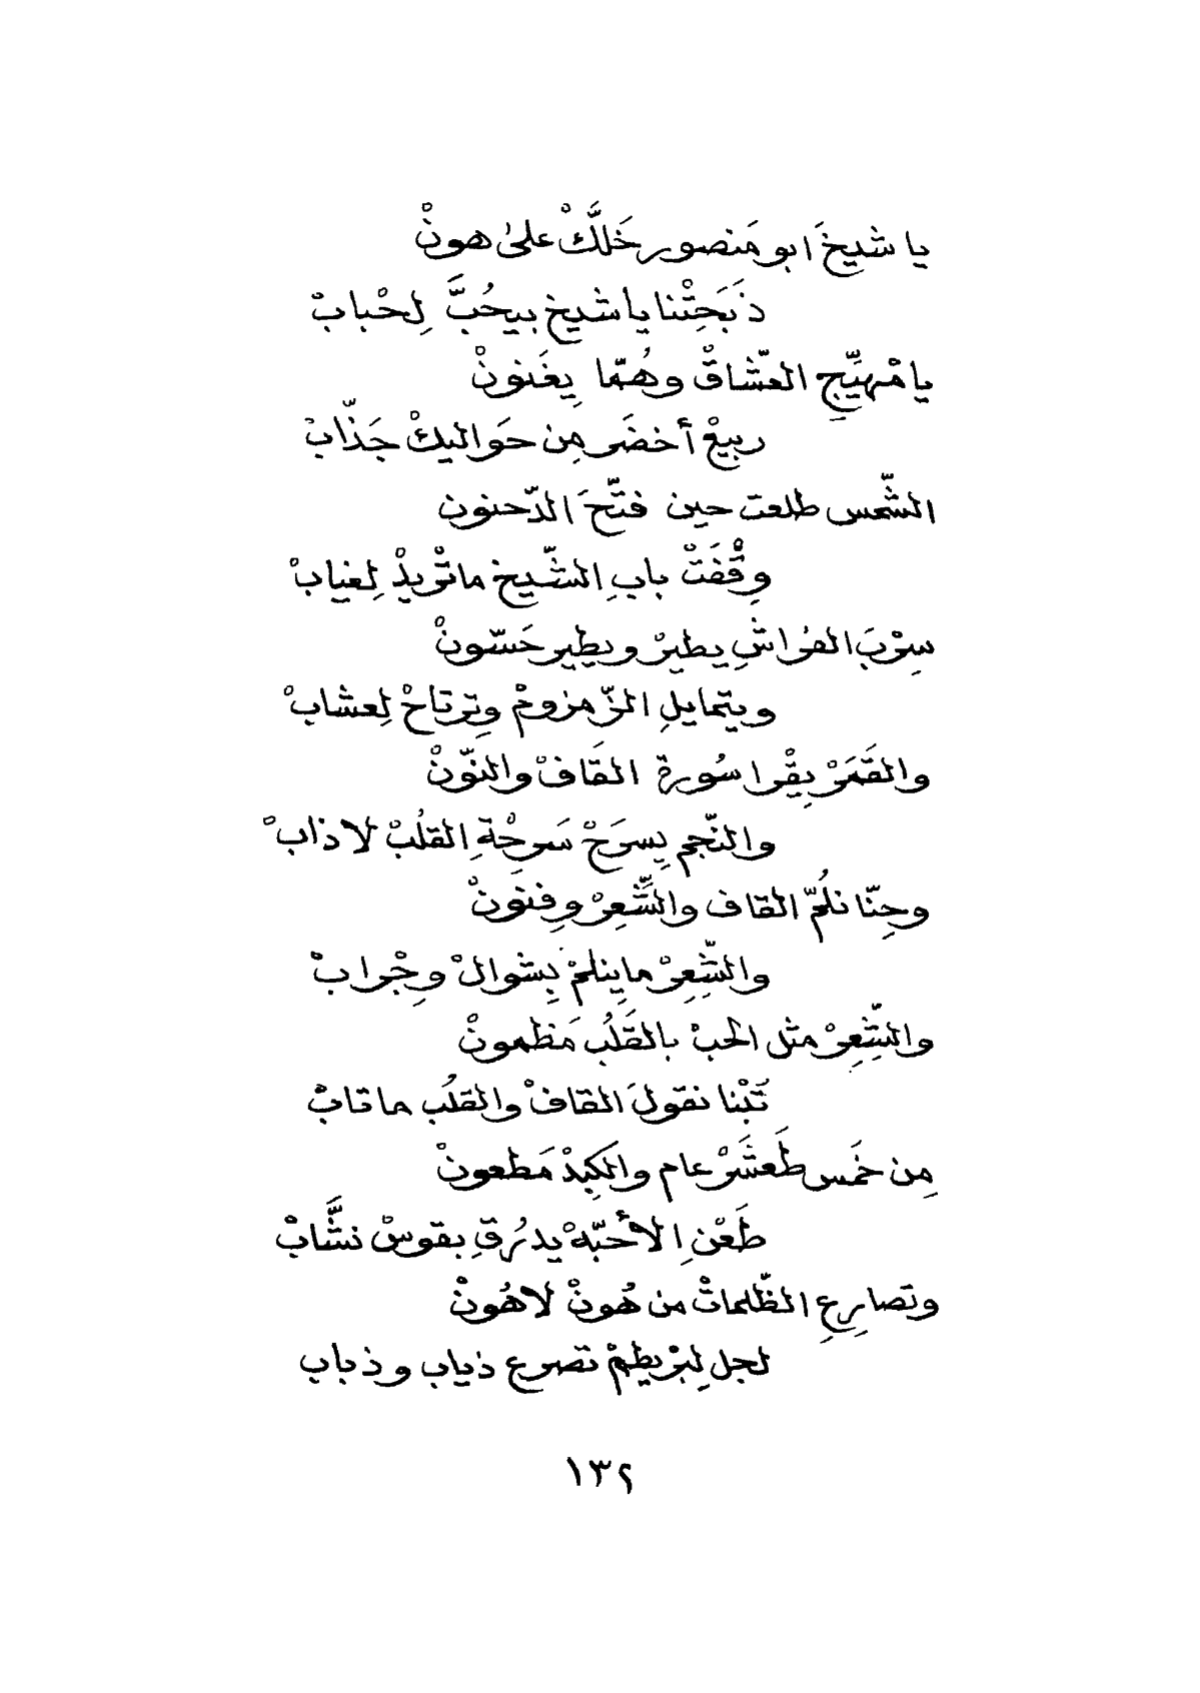 يا شيخَ ابو مَنصور خَلَّكْ على هونْ
ذَبَحِتْنا يا شيخ بيحُبَّ لِحْبابْ
يا مْهيِّجِ العشّاقْ وهُمّا يِغَنونْ
ربيعْ أخضَر مِن حَواليكْ جَذّابْ
الشّمس طلعت حين فتَّحَ الدّحنون
وِقْفَتْ بابِ الشّيخ ماتْريدْ لِغيابْ
سِرْبَ الفراشِ يطيرْ ويطِير حَسّونْ
ويتمايلِ الزّمزومْ وِترتاحْ لِعشابْ
والقَمَرْ يِقْرا سُورة القَافْ والنّونْ
والنّجم يِسرَحْ سَرحْةِ القلُبْ لا ذابْ
وحِنّا نلُمّ القاف والشّعِرْ وِفنونْ
والشِّعِرْ ماينلمْ بِشوالْ وِجْرابْ
والشِّعِرْ مثل الحبْ بالقَلُبْ مَظمونْ
تُبْنا نقولَ القافْ والقلُب ماتابْ
مِن خَمس طَعشَرْ عام والكِبِدْ مَطعونْ
طَعْنِ الأحبّهْ يدرُقِ بقوسْ نشَّابْ
وتصارِعِ الظّلماتْ من هُونْ لاهُونْ
لجل لِبْريطِمْ تصرع ذياب وذباب
١٣٢